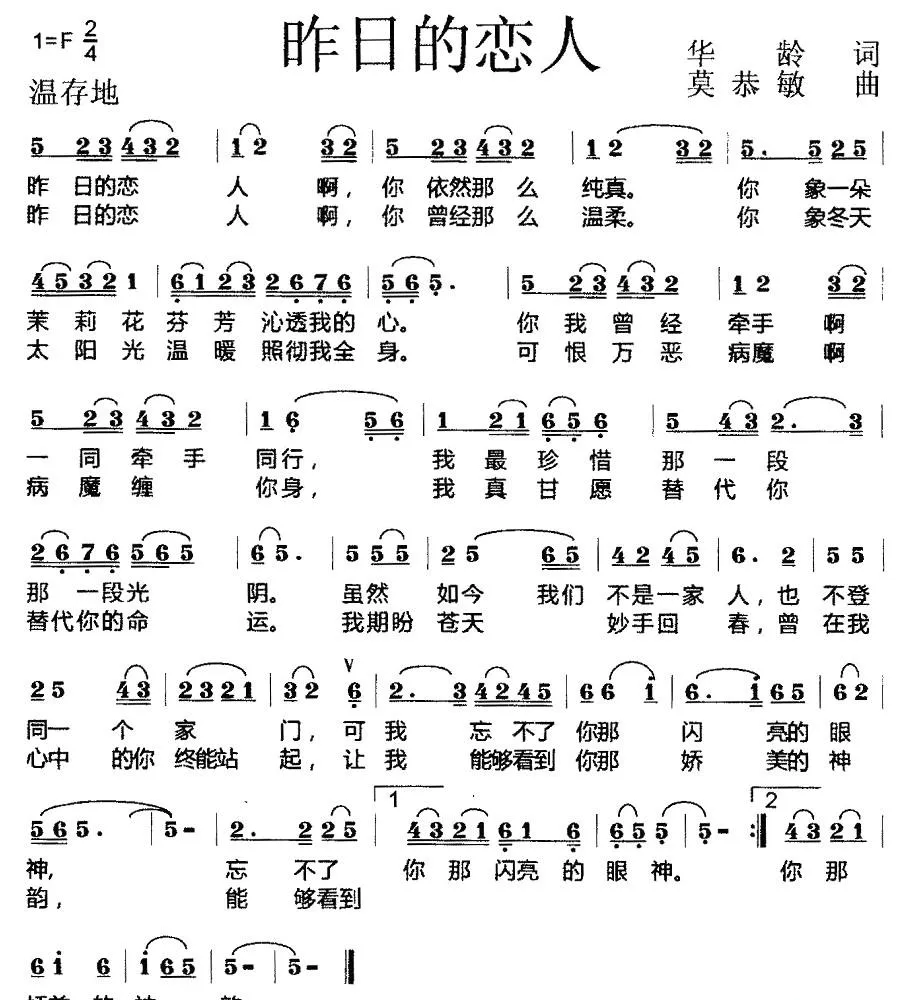 昨日的恋人
1=F 2/4
华龄 词
温存地
莫恭敏 曲
5 2 3 4 3 2 | 1 2 3 2 | 5 2 3 4 3 2 | 1 2 3 2 | 5. 5 2 5 |
昨日的恋 人 啊, 你 依然那么 纯真。 你 象一朵
昨日的恋 人 啊, 你 曾经那么 温柔。 你 象冬天
4 5 3 2 1 | 6 1 2 3 2 6 7 6 | 5 6 5. | 5 2 3 4 3 2 | 1 2 3 2 |
茉莉花芬芳沁透我的心。 你我曾经 牵手 啊
太阳光温暖照彻我全身。 可恨万恶 病魔 啊
5 2 3 4 3 2 | 1 6 5 6 | 1 2 1 6 5 6 | 5 4 3 2. 3 |
一同牵手 同行, 我最珍惜 那一段
病魔缠 你身, 我真甘愿 替代你
2 6 7 6 5 6 5 | 6 5. | 5 5 5 | 2 5 6 5 | 4 2 4 5 | 6. 2 | 5 5
那一段光 阴。 虽然 如今 我们 不是一家 人, 也 不登
替代你的命 运。 我期盼 苍天 妙手回 春, 曾 在我
2 5 4 3 | 2 3 2 1 | 3 2 ∨ 6 | 2. 3 4 2 4 5 | 6 6 1 | 6. 1 6 5 | 6 2
同一 个 家 门, 可我 忘 不了 你那 闪 亮的 眼
心中 的你 终能站 起, 让我 能够看到 你那 娇 美的 神
5 6 5. | 5 - | 2. 2 2 5 | 1 4 3 2 1 6 1 6 | 6 5 5 | 5 - :‖ 2 4 3 2 1
神, 忘 不了 你那闪亮的眼神。 你那
韵, 能 够看到
6 1 6 | 1 6 5 | 5 - | 5 - ‖